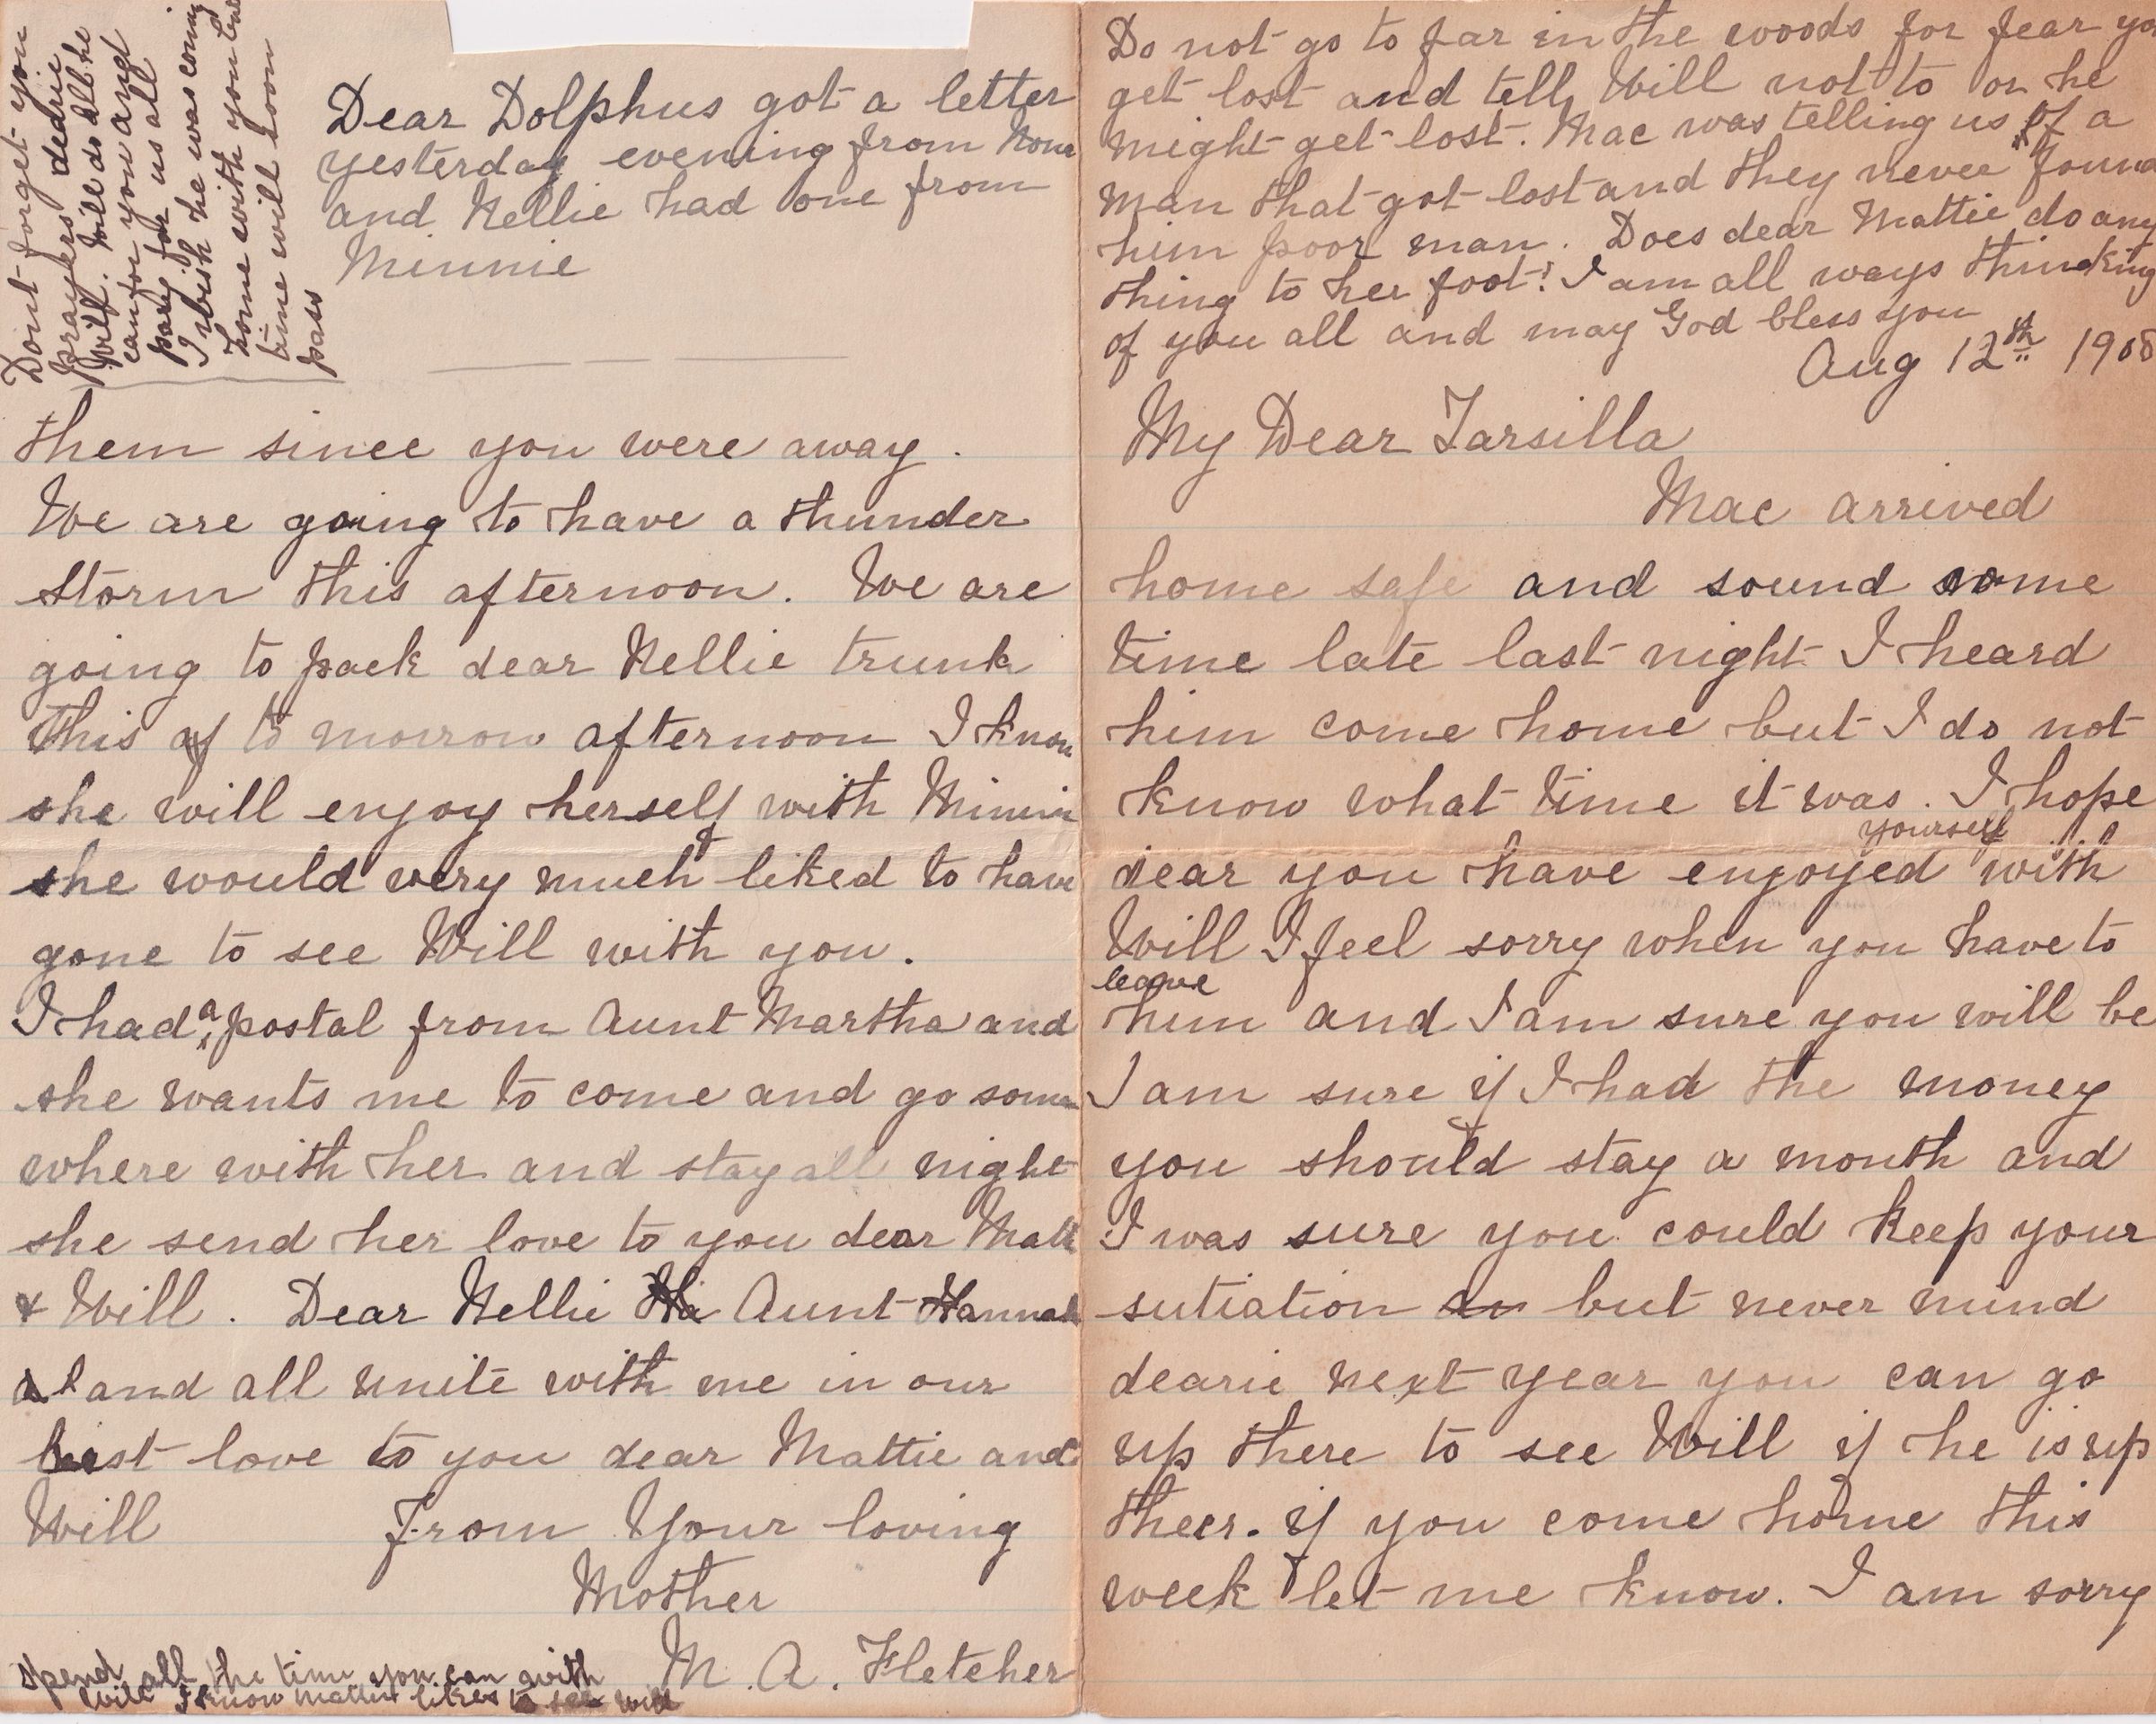 Do not go to far in the woods for fear yo
get lost and tell Will not to or he
might get lost. Mac was telling us of a
man that got lost and they never found
him poor man. Does dear Mattie do any
thing to her foot? I am all ways thinking
of you all and may God bless you
Aug 12th 1908
My Dear Tarsilla
Mac arrived
home safe and sound some
time late last night I heard
him come home but I do not
know what time it was. I hope
yourself
dear you have enjoyed with
Will I feel sorry when you have to
leave
him and I am sure you will be
I am sure if I had the money
you should stay a month and
I was sure you could keep your
sutiation an but never mind
dearie next year you can go
up there to see Will if he is up
theer. if you come home this
week let me know. I am sorry
Dont forget you
prayers dearie
Will. Will do all he
can for you and
pary for us all
I wish he was coming
home with you
time will soon
pass
Dear Dolphus got a letter
yesterday evening from Nona
and Nellie had one from
Minnie
them since you were away.
We are going to have a thunder
storm this afternoon. We are
going to pack dear Nellie trunk
this af to morrow afternoon I know
she will enjoy herself with Minnie
she would very much liked to have
gone to see Will with you.
I had a postal from Aunt Martha and
she wants me to come and go some
where with her and stay all night
she send her love to you dear Matt
& Will. Dear Nellie Ha Aunt Hannah
and all unite with me in our
best love to you dear Mattie and
Will From Your loving
Mother
M. A. Fletcher
Spend all the time you can with
Will I know Mattie likes to see Will